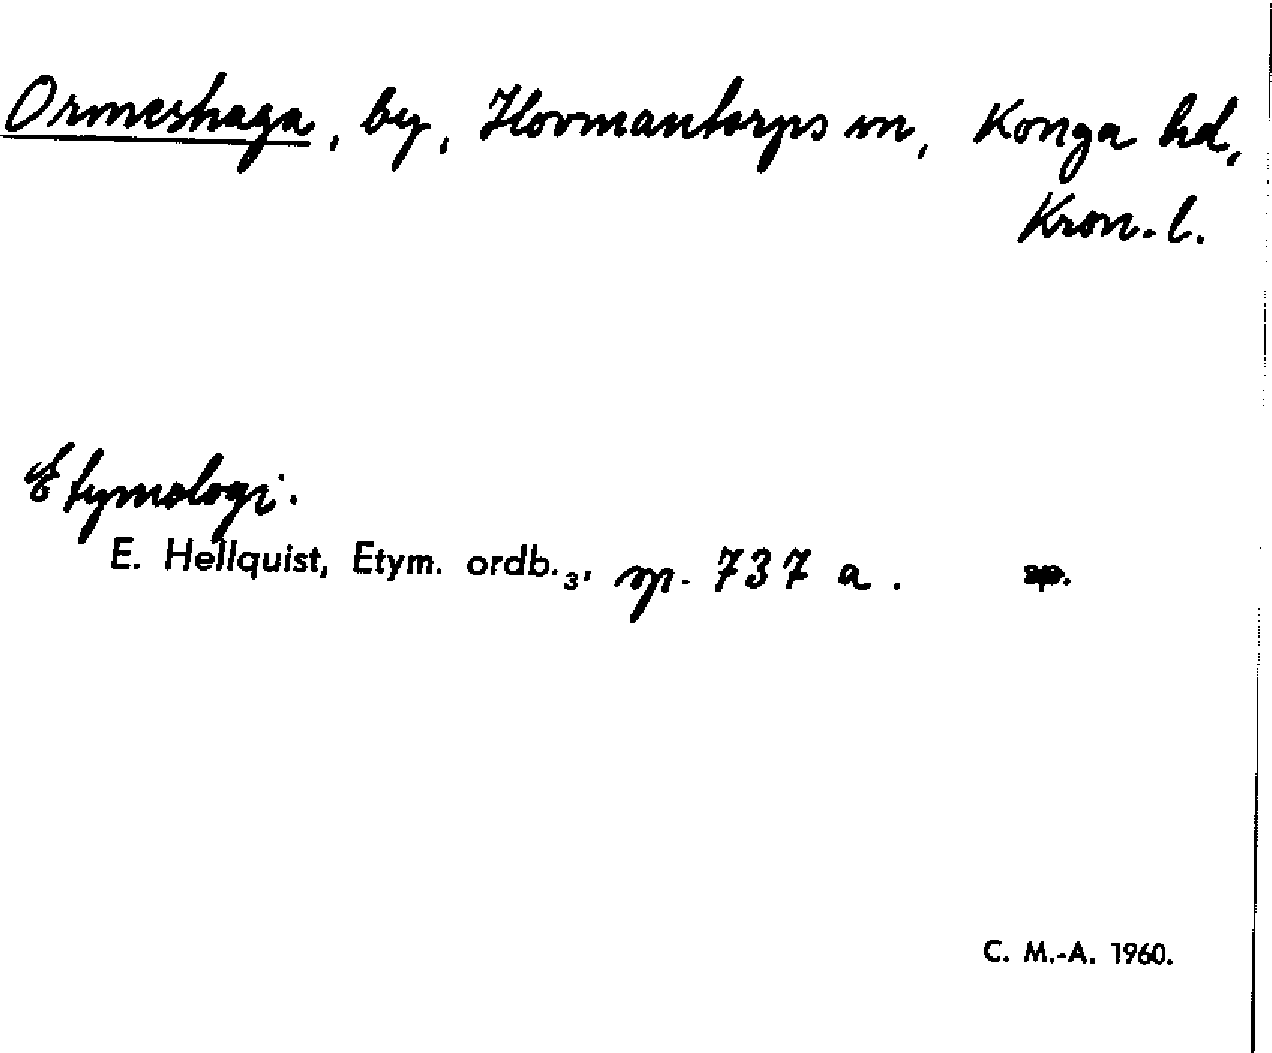 Ormeshaga, by, Hovmantorps sn, Konga hd,
Kron. l.
Etymologi.
E. Hellquist, Etym. ordb.₃, sp. 737 a. sp.
C. M.-A. 1960.